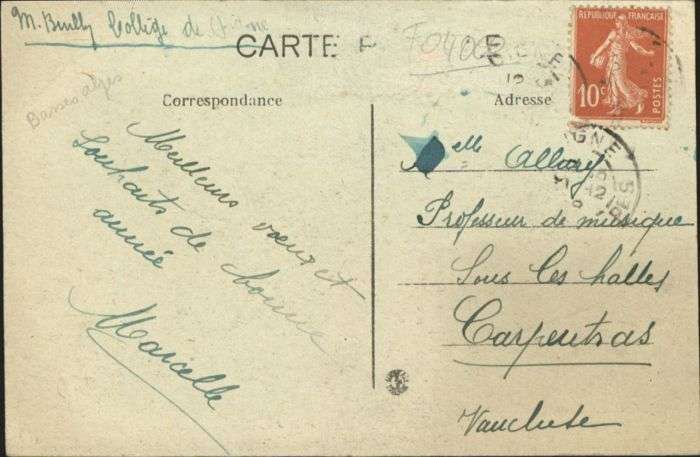 M. Bully Collège de
CARTE P E
F0400
Basses alpes
Correspondance
Meilleurs voeux et
souhaits de bonne
année
Marcelle
RÉPUBLIQUE FRANÇAISE
10c
POSTES
Adresse
Melle Allary
Professeur de musique
Sous les halles
Carpentras
Vaucluse